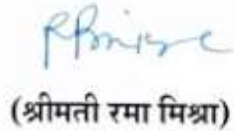 (श्रीमती रमा मिश्रा)